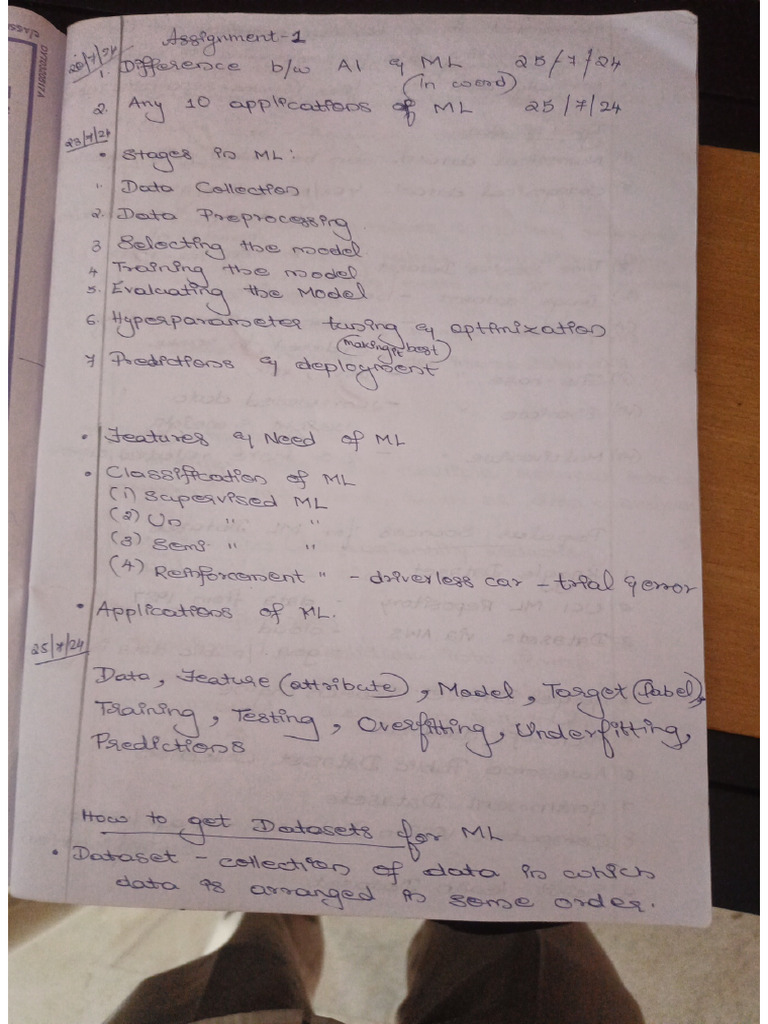 Assignment-1
20/7/24
1. Difference b/w AI & ML 25/7/24
(in word)
2. Any 10 applications of ML 25/7/24
23/7/24
• Stages in ML:
1. Data Collection
2. Data Preprocessing
3 Selecting the model
4 Training the model
5. Evaluating the Model
6. Hyperparameter tuning & optimization
(making it best)
7 Predictions & deployment
• Features & Need of ML
• Classification of ML
(1) Supervised ML
(2) Un " "
(3) Semi " "
(4) Reinforcement " - driverless car - trial & error
• Applications of ML.
25/7/24
Data, Feature (attribute), Model, Target (label),
Training, Testing, Overfitting, Underfitting,
Predictions
How to get Datasets for ML
• Dataset - collection of data in which
data is arranged in some order.